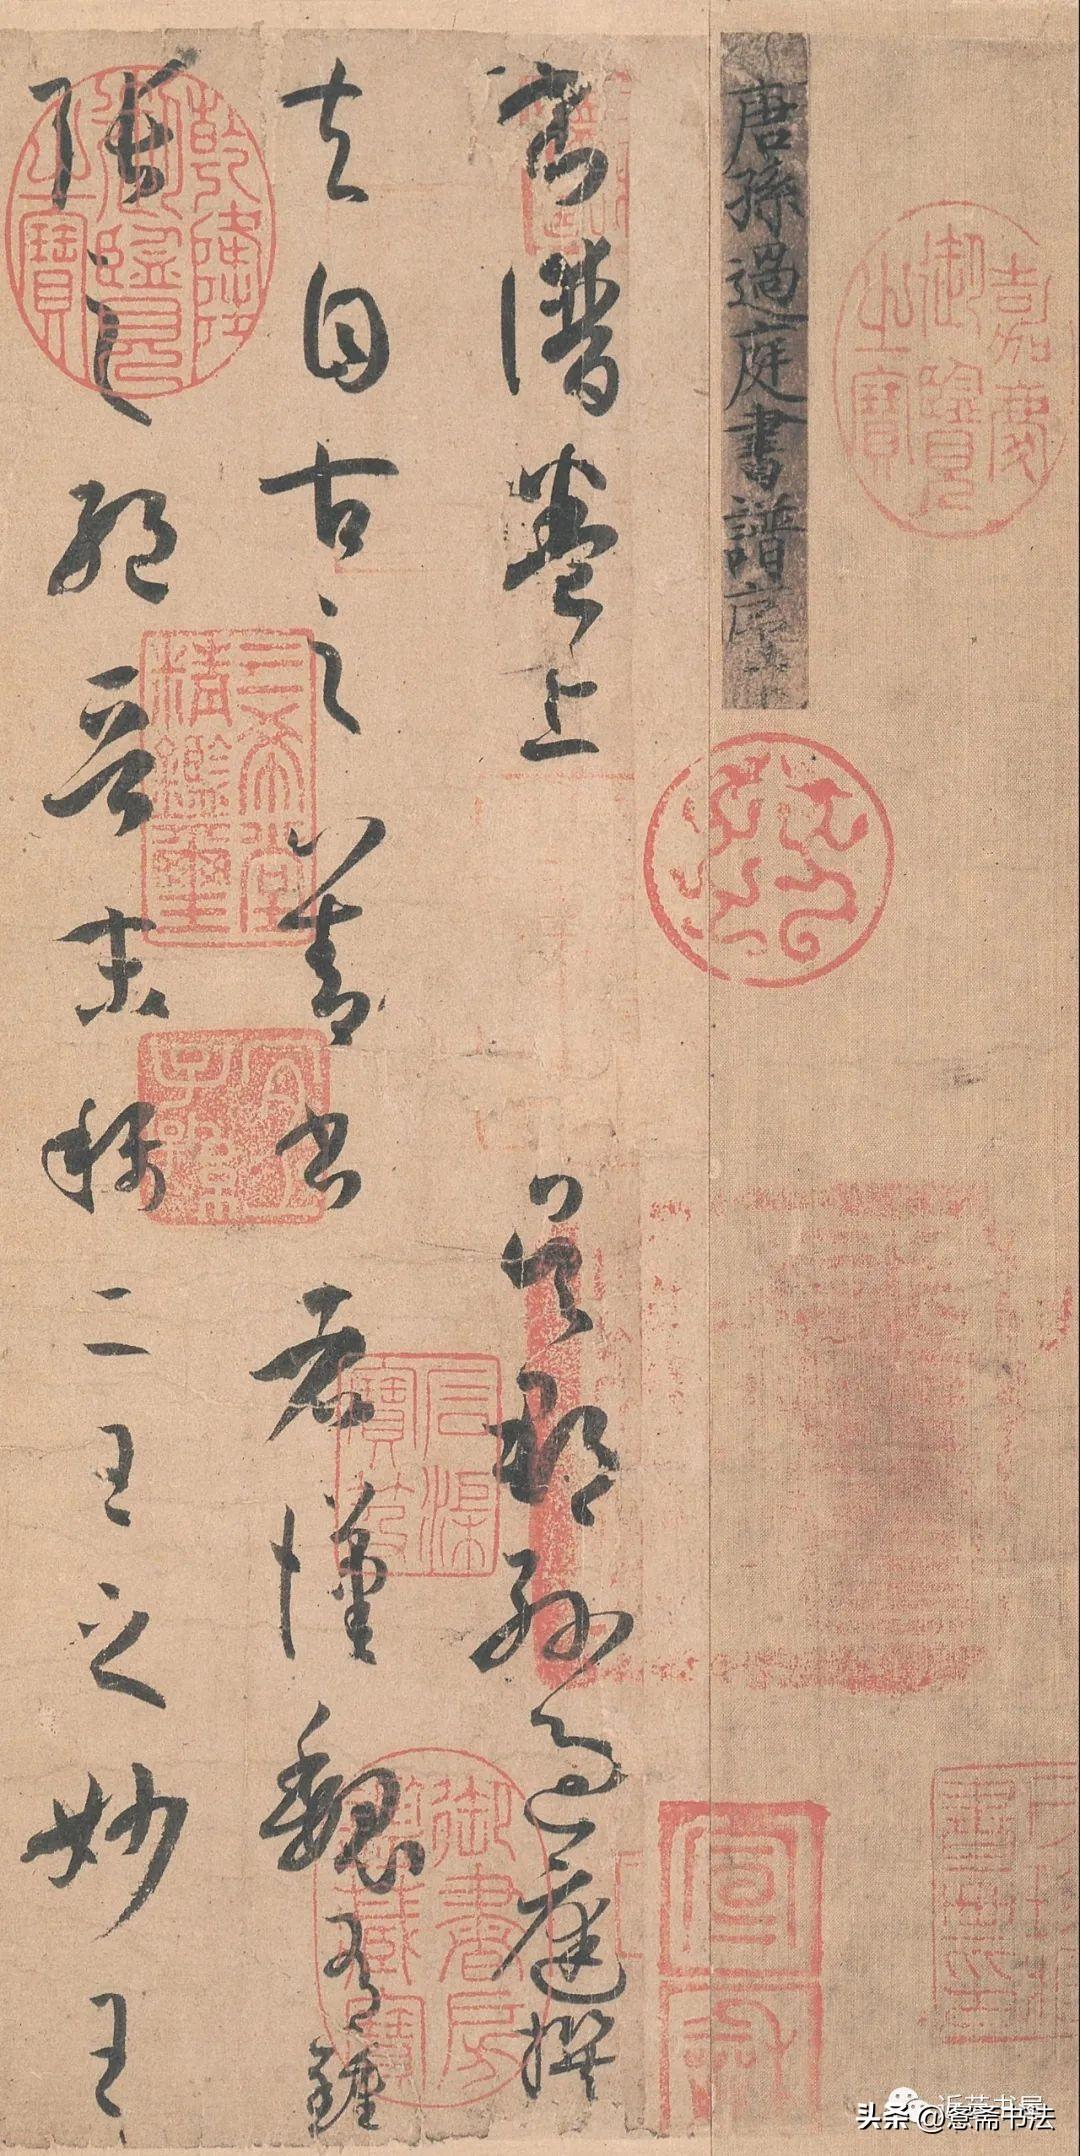 嘉慶御覽之寶
唐孫過庭書譜序
書譜卷上
吳郡孫過庭撰
夫自古之善書者漢魏有鍾
張之絕晉末稱二王之妙王
乾隆御覽之寶
三希堂精鑑璽
宜子孫
石渠寶笈
御書房鑑藏寶
宣和
头条 @悫斋书法